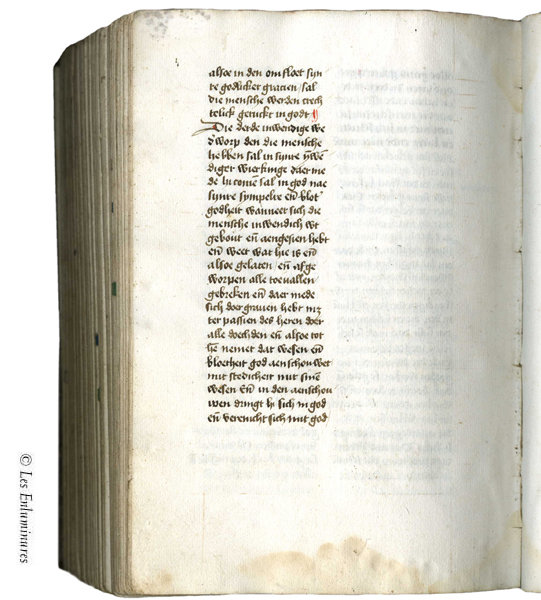 alsoe in den om floet syn
re godlicker gracien / sal
die mensche werden trech
telick geruckt in godt ¶
Die derde inwendige we
d'worp den die mensche
hebben sal in synre
diger wierkinge daer me
de hi comē sal in god nae
synre sympelre eñ blot
godheit wanneer sich die
mensche inwendich wt
gebout eñ aengesien hebt
eñ weet wat hie is eñ
alsoe gelaten eñ afge
worpen alle toevallen
gebreken eñ daer mede
sich doer graven hebt
ter passien des heren doer
alle doechden eñ alsoe tot
nemet dat wesen eñ
bloetheit god aenschouwet
mit stedicheit mit sinē
wesen Eñ in den aenschou
wen dringt hi sich in god
eñ vernicht sich mit god
© Les Enluminures